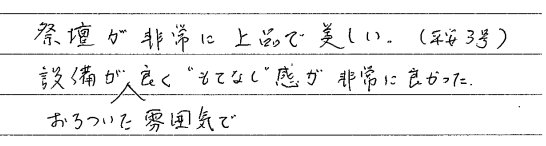 祭壇が非常に上品で美しい。(采女3号)
設備が良く“もてなし”感が非常に良かった.
おちついた雰囲気で